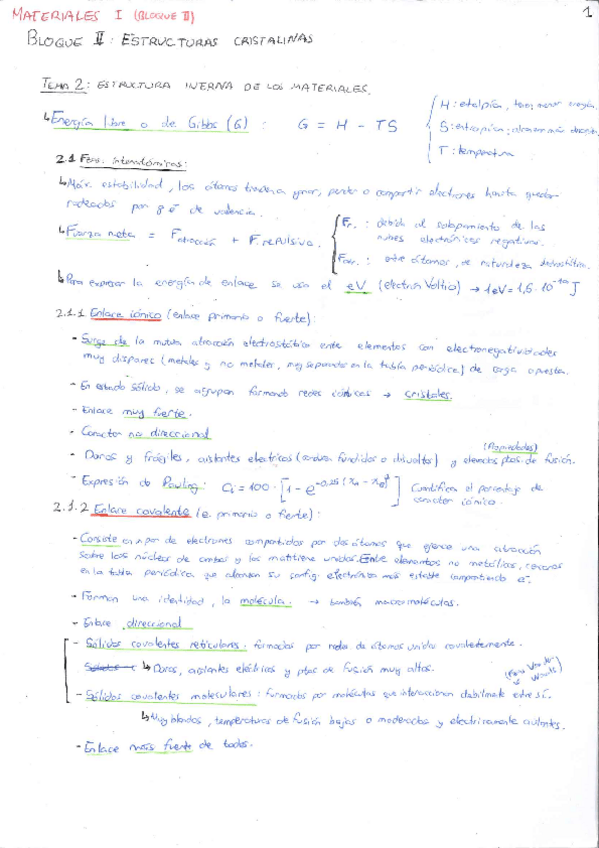 MATERIALES I (BLOQUE II)
1
BLOQUE II: ESTRUCTURAS CRISTALINAS
TEMA 2: ESTRUCTURA INTERNA DE LOS MATERIALES.
↳ Energía libre o de Gibbs (G) : G = H - TS
H: entalpía, tiene menor energía.
S: entropía,
T: temperatura
2.1 Fzas. interatómicas:
↳ Máx. estabilidad, los átomos tienden a ganar, perder o compartir electrones hasta quedar
rodeados por 8 é de valencia.
↳ Fuerza neta = F atracción + F. repulsiva.
Fr. : debida al solapamiento de las
nubes electrónicas negativas.
Fatr. : entre átomos, de naturaleza electrostática.
↳ Para expresar la energía de enlace se usa el eV (electrón Voltio) → 1eV = 1,6 · 10⁻¹⁹ J
2.1.1 Enlace iónico (enlace primario o fuerte):
- Surge de la mutua atracción electrostática entre elementos con electronegatividades
muy dispares (metales y no metales, muy separados en la tabla periódica) de carga opuesta.
- En estado sólido, se agrupan formando redes iónicas → cristales.
- Enlace muy fuerte.
- Caracter no direccional
(Propiedades)
- Duros y frágiles, aislantes electricos (conducen fundidos o disueltos) y elevados ptos. de fusión.
- Expresión de Pauling: Ci = 100 · [1 - e^-0,25 (Xn - Xe)²] Cuantifica el porcentaje de
caracter iónico.
2.1.2 Enlace covalente (e. primario o fuerte):
- Consiste en un par de electrones compartidos por dos átomos que ejerce una atracción
sobre los núcleos de ambos y los mantiene unidos. Entre elementos no metálicos, cercanos
en la tabla periódica que alcanzan su config. electrónica más estable compartiendo é.
- Forman una identidad, la molécula. → también macromoléculas.
- Enlace direccional
- Sólidos covalentes reticulares: formados por redes de átomos unidos covalentemente.
Sólidos c
↳ Duros, aislantes eléctricos y ptos de fusión muy altos.
- Sólidos covalentes moleculares: formados por moléculas que interaccionan debilmente entre sí.
↳ Muy blandos, temperaturas de fusión bajas o moderadas y electricamente aislantes.
- Enlace más fuerte de todos.